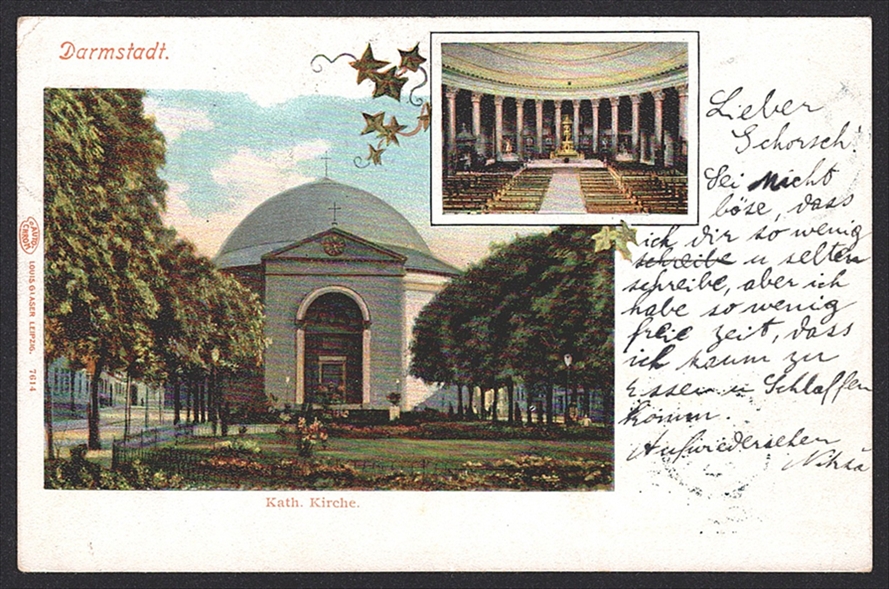 Darmstadt.
AUTO CHROM
LOUIS GLASER LEIPZIG. 7614
Kath. Kirche.
Lieber
Schorsch!
Sei nicht
böse, dass
ich dir so wenig
schreibe u selten
schreibe, aber ich
habe so wenig
freie zeit, dass
ich kaum zu
Essen u Schlaffen
komm.
Aufwiedersehen